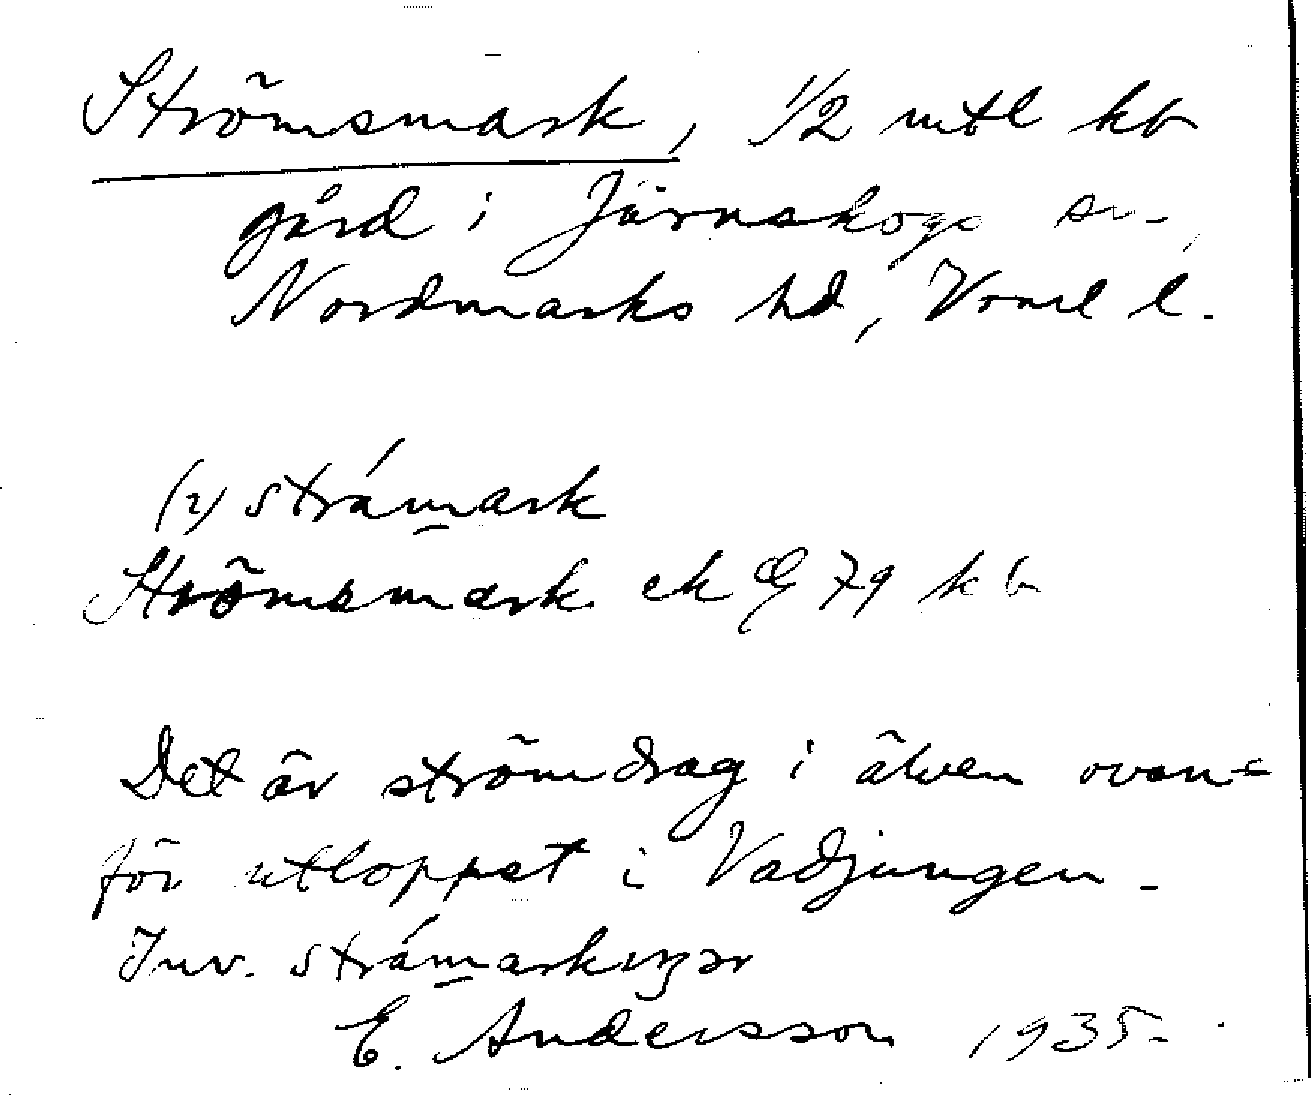 Strömsmark, 1/2 mtl kb
gård i Järnskogs sn,
Nordmarks hd, Värml l.
(2) stråmark
Strömsmark ek 79 kb
Det är strömdrag i älven ovan-
för utloppet i Vadjungen.
Inv. stråmarkiŋər
E. Andersson 1935.